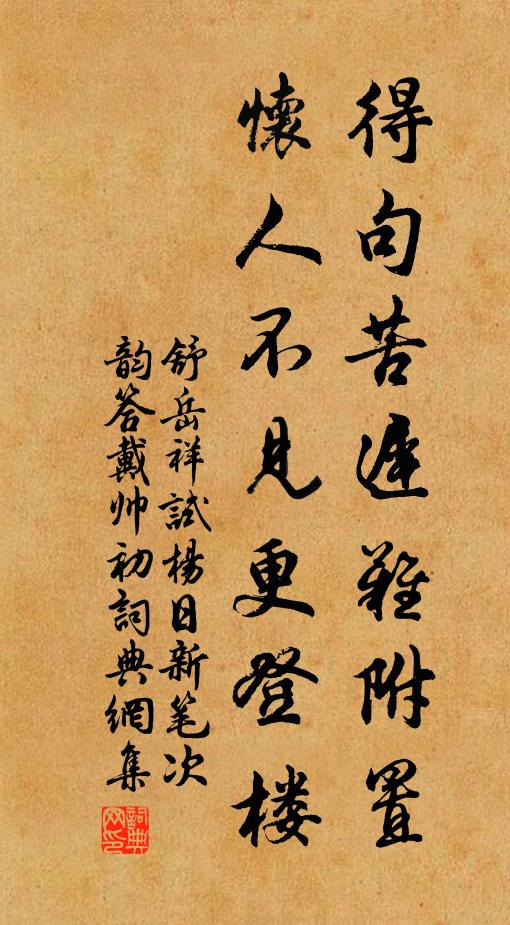 得句苦遲難附置
懷人不見更登楼
舒岳祥試楊日新笔次
韵答戴帅初詞典網集
詞典网印